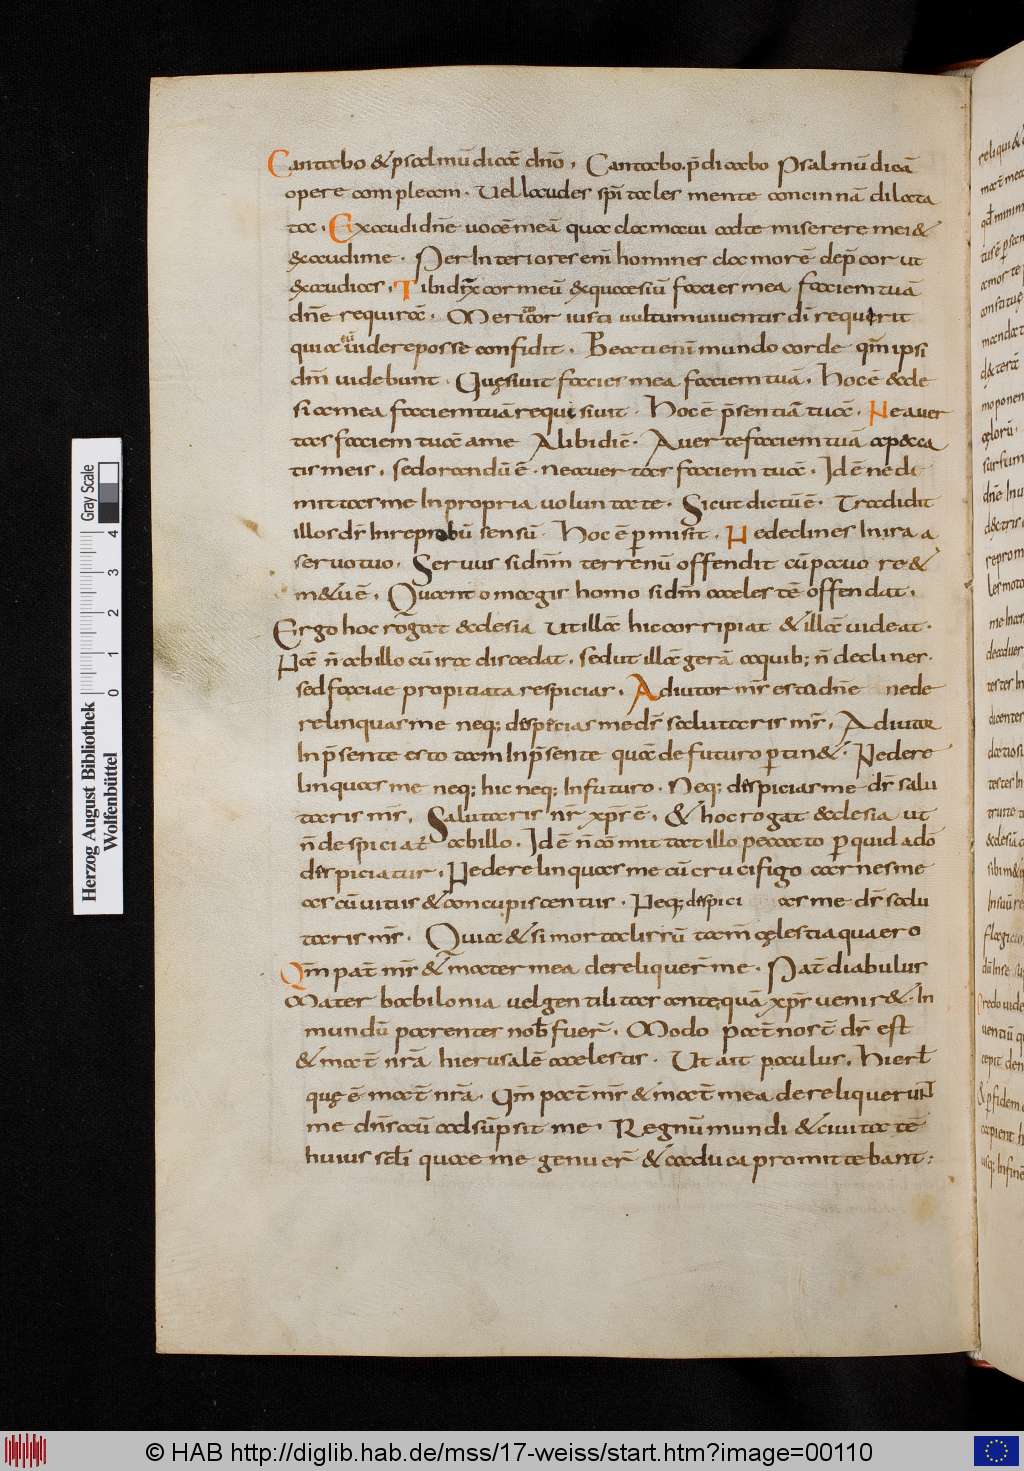 Cantabo & psalmū dicā dn̄o, Cantabo. p̄dicabo Psalmū dicā
opere compleam. Vel laudes sp̄itales mente concinnā dilata
ta. Exaudi dn̄e uocē meā qua clamaui ad te miserere mei &
exaudi me. Per Interiores eni hominer clamorē dep̄cor ut
exaudias, Tibi dix̄ cor meū exquaesiū facies mea faciem tuā
dn̄e requirā. Merito cor iusti uultum uiuentis dī requirit
quia eū uidere posse confidit. Beati enī mundo corde qm̄ ipsi
dm̄ uidebunt. Quęsiuit facies mea faciem tuā. Hoc ē &cle
sia mea faciem tuā requisiuit. Hoc ē p̄sentiā tuā. Ne auer
tas faciem tuā a me Alibi diē. Auerte faciem tuā a p&ca
tis meis, sed orandū ē. ne auertas faciem tuā. Id ē ne di
mittas me In propria uoluntate. Sicut dictū ē. Tradidit
illos ds̄ In reprobū sensū. Hoc ē pmisit. Ne declines In ira a
seruo tuo. Seruus si dnm̄ terrenū offendit cū pauore &
m&u ē, Quanto magis homo si dm̄ caelestē offendat.
Ergo hoc rogat &clesia ut illā hic corripiat & illā uideat.
Hac n̄ ab illo cū ira discedat. sed ut illā gerā a quib; n̄ declines.
sed faciae propitiata respicias, Adiutor ms̄ esto dn̄e nede
relinquas me neq; despicias me ds̄ salutaris ms̄, Adiutor
In p̄sente esto tam In p̄sente quā de futuro ptin&. Ne dere
linquas me neq; hic neq; In futuro. Neq; despicias me ds̄ salu
taris ms̄, Salutaris nr̄ xp̄s ē, & hoc rogat &clesia ut
n̄ despiciat ab illo. Id ē n̄ cōmittat illo peccato p quid adō
despiciatur, Ne derelinquas me cū crucifigo carnes me
as cū uitiis & concupiscentiis. Neq; despici as me ds̄ salu
taris ms̄. Quia & si mortalis sū tam̄ cęlestia quaero
Qm̄ pat̄ ms̄ & mater mea dereliquer̄ me. Pat̄ diabulus
Mater babilonia uel gentilitas antequā xp̄s uenir&. In
mundū parentes nob̄ fuer̄. Modo pat̄ nost̄ ds̄ est
& mat̄ nr̄ā hierusalē caelestis. Ut ait paulus, Hierl̄
quę ē mat̄ nr̄ā. Qm̄ pat̄ ms̄ & mat̄ mea dereliquerunt
me dn̄s autē adsūpsit me. Regnū mundi & ciuitatē
huius scl̄i quae me genuer̄ & caduca promittebant:
Gray Scale
0 1 2 3 4
Herzog August Bibliothek
Wolfenbüttel
© HAB http://diglib.hab.de/mss/17-weiss/start.htm?image=00110